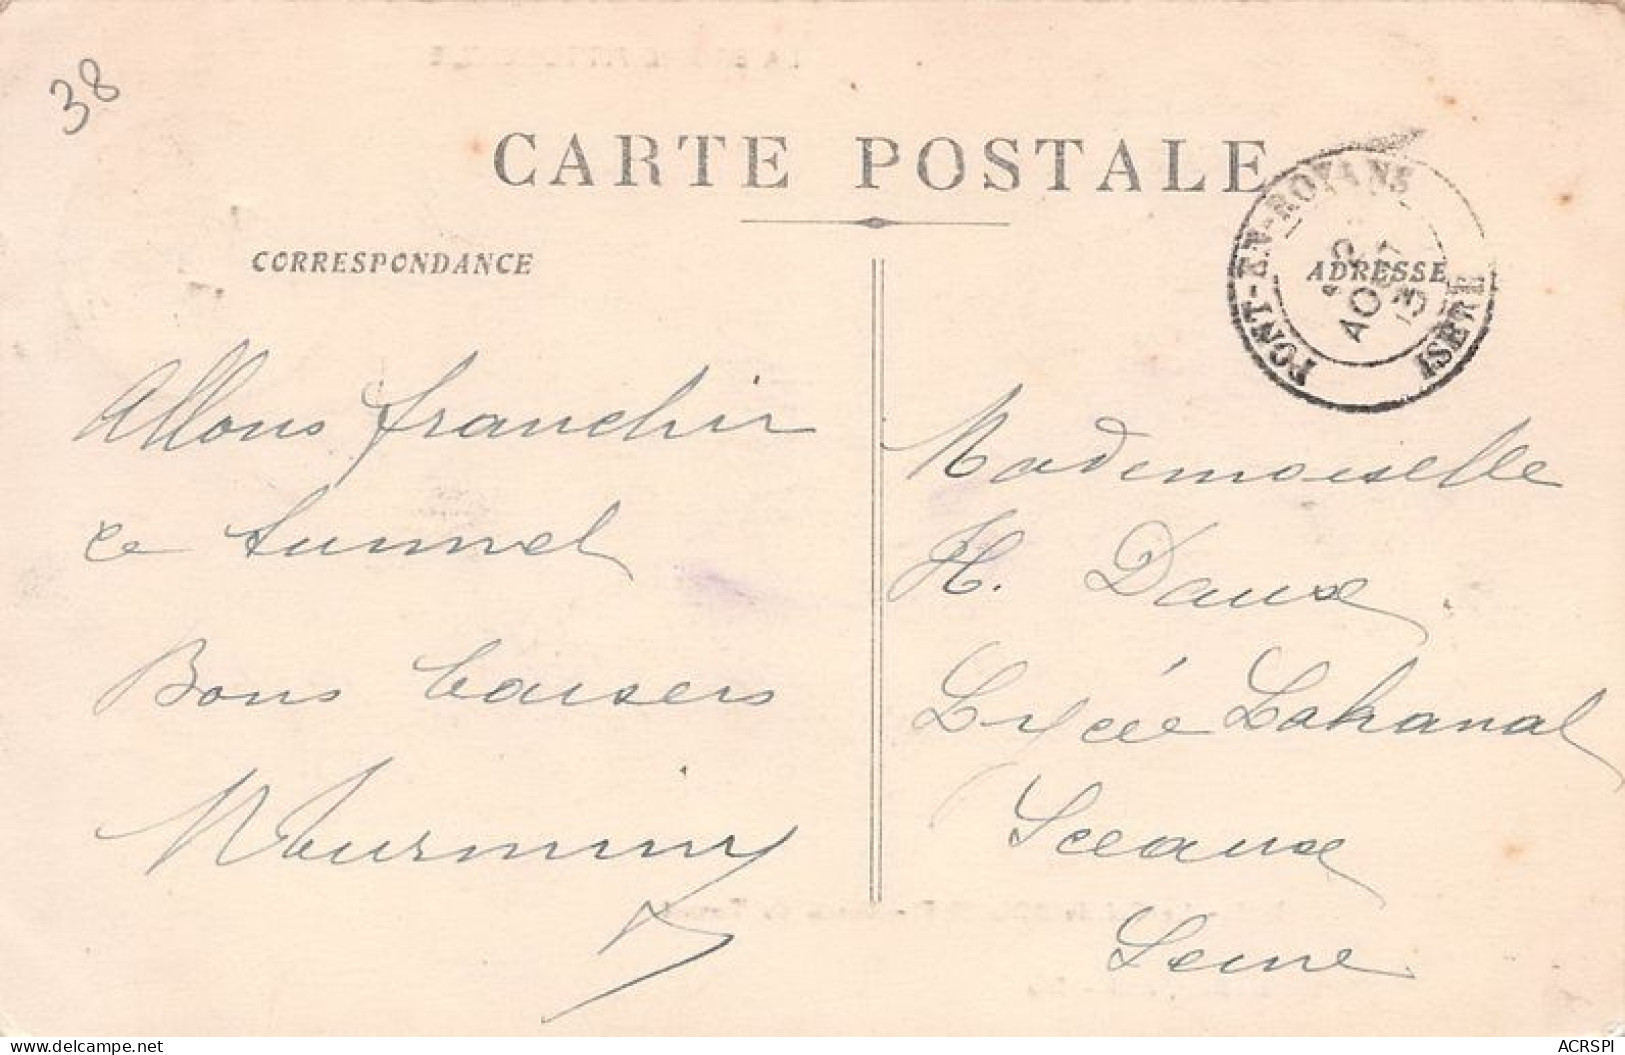 38
CARTE POSTALE
CORRESPONDANCE
ADRESSE
PONT-EN-ROYANS
AOUT
13
ISERE
Allons franchir
ce tunnel
Bons baisers
Mademoiselle
H. Daux
Lycée Lakanal
Sceaux
Seine
www.delcampe.net
ACRSPI